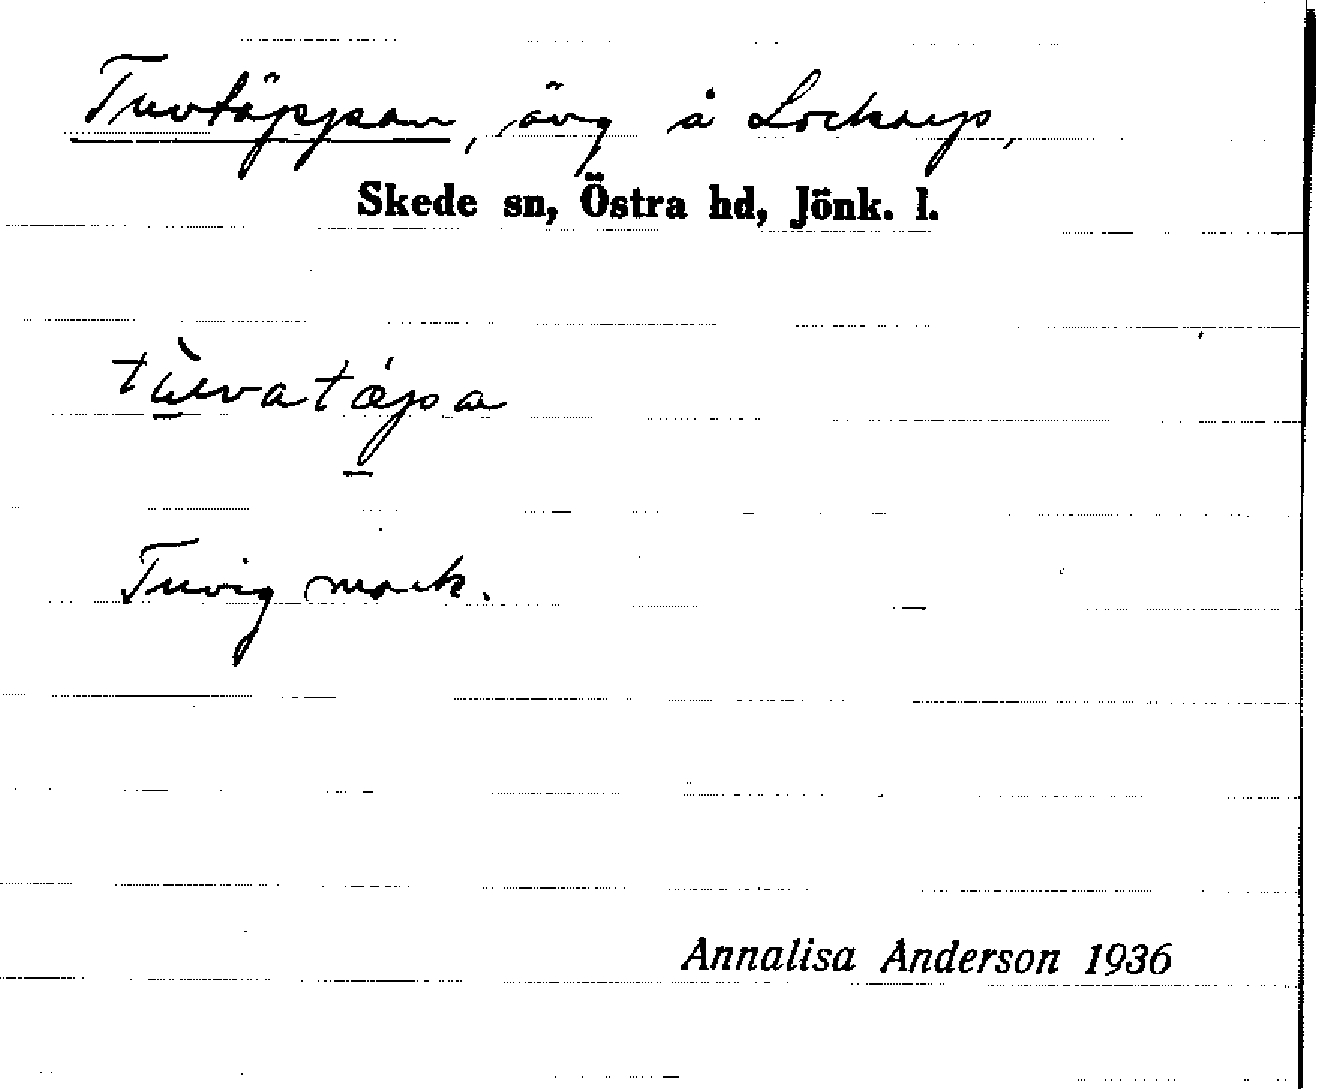 Tuvtäppan, äng å Lockarp,
Skede sn, Östra hd, Jönk. l.
tùvatápa
Tuvig mark.
Annalisa Anderson 1936